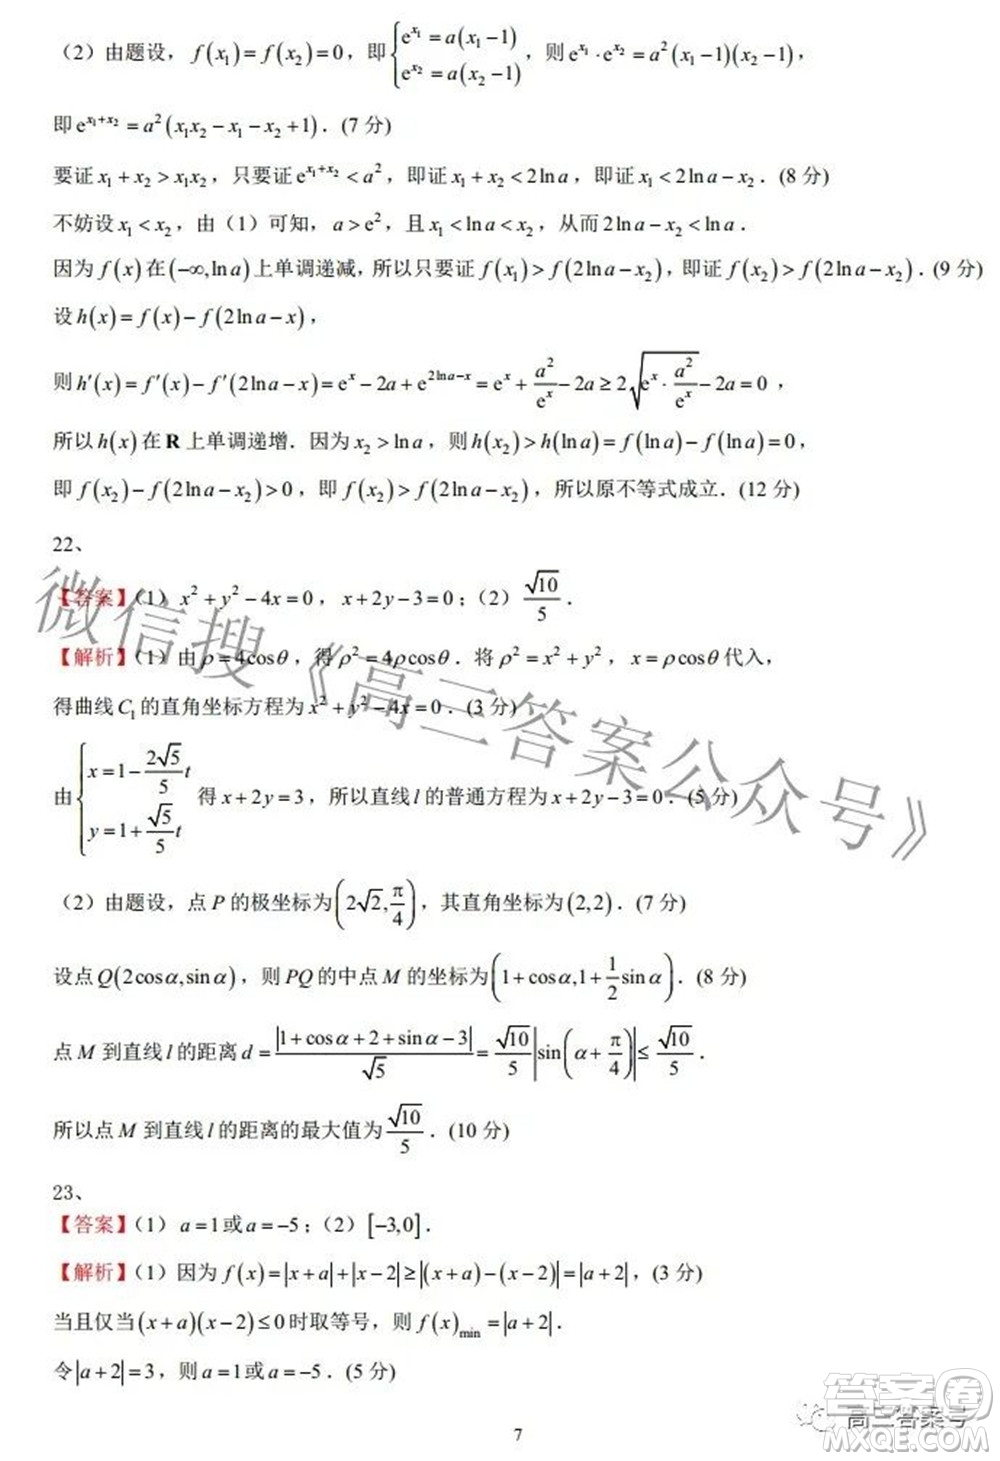 （2）由题设，f(x₁)=f(x₂)=0，即{e^{x₁}=a(x₁-1) e^{x₂}=a(x₂-1)，则e^{x₁}·e^{x₂}=a²(x₁-1)(x₂-1)，
即e^{x₁+x₂}=a²(x₁x₂-x₁-x₂+1)．(7 分)
要证 x₁+x₂>x₁x₂，只要证e^{x₁+x₂}<a²，即证 x₁+x₂<2ln a，即证 x₁<2ln a-x₂．(8 分)
不妨设 x₁<x₂，由（1）可知，a>e²，且 x₁<ln a<x₂，从而 2ln a-x₂<ln a．
因为 f(x) 在(-∞,ln a)上单调递减，所以只要证 f(x₁)>f(2ln a-x₂)，即证 f(x₂)>f(2ln a-x₂)．(9 分)
设 h(x)=f(x)-f(2ln a-x)，
则 h′(x)=f′(x)-f′(2ln a-x)=e^x-2a+e^{2ln a-x}=e^x+a²/e^x-2a≥2√(e^x·a²/e^x)-2a=0，
所以 h(x) 在 R 上单调递增．因为 x₂>ln a，则 h(x₂)>h(ln a)=f(ln a)-f(ln a)=0，
即 f(x₂)-f(2ln a-x₂)>0，即 f(x₂)>f(2ln a-x₂)，所以原不等式成立．(12 分)
22、
【答案】（1）x²+y²-4x=0，x+2y-3=0；（2）√10/5．
【解析】（1）由ρ=4cosθ，得ρ²=4ρcosθ．将ρ²=x²+y²，x=ρcosθ代入，
得曲线 C₁ 的直角坐标方程为 x²+y²-4x=0．(3 分)
由{x=1-(2√5/5)t y=1+(√5/5)t 得 x+2y=3，所以直线 l 的普通方程为 x+2y-3=0．(5 分)
（2）由题设，点 P 的极坐标为(2√2,π/4)，其直角坐标为(2,2)．(7 分)
设点 Q(2cosα,sinα)，则 PQ 的中点 M 的坐标为(1+cosα,1+½sinα)．(8 分)
点 M 到直线 l 的距离 d=|1+cosα+2+sinα-3|/√5=√10/5|sin(α+π/4)|≤√10/5．
所以点 M 到直线 l 的距离的最大值为√10/5．(10 分)
23、
【答案】（1）a=1或a=-5；（2）[-3,0]．
【解析】（1）因为 f(x)=|x+a|+|x-2|≥|(x+a)-(x-2)|=|a+2|，(3 分)
当且仅当(x+a)(x-2)≤0 时取等号，则 f(x)min=|a+2|．
令|a+2|=3，则 a=1或a=-5．(5 分)
7
微信搜《高三答案公众号》
高三答案号
答案圈
MXQE.COM